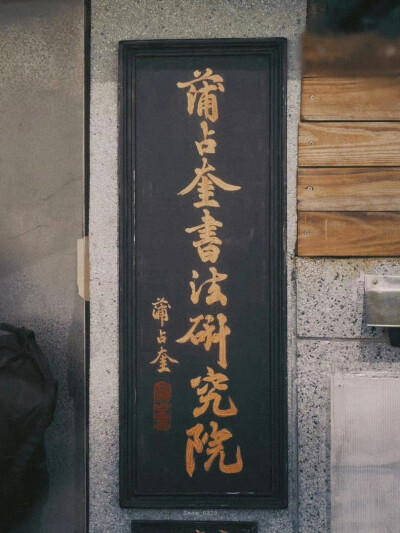 蒲占奎書法研究院
蒲占奎